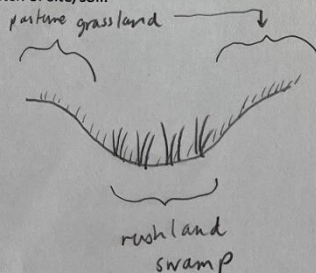 pasture grassland
rushland
swamp